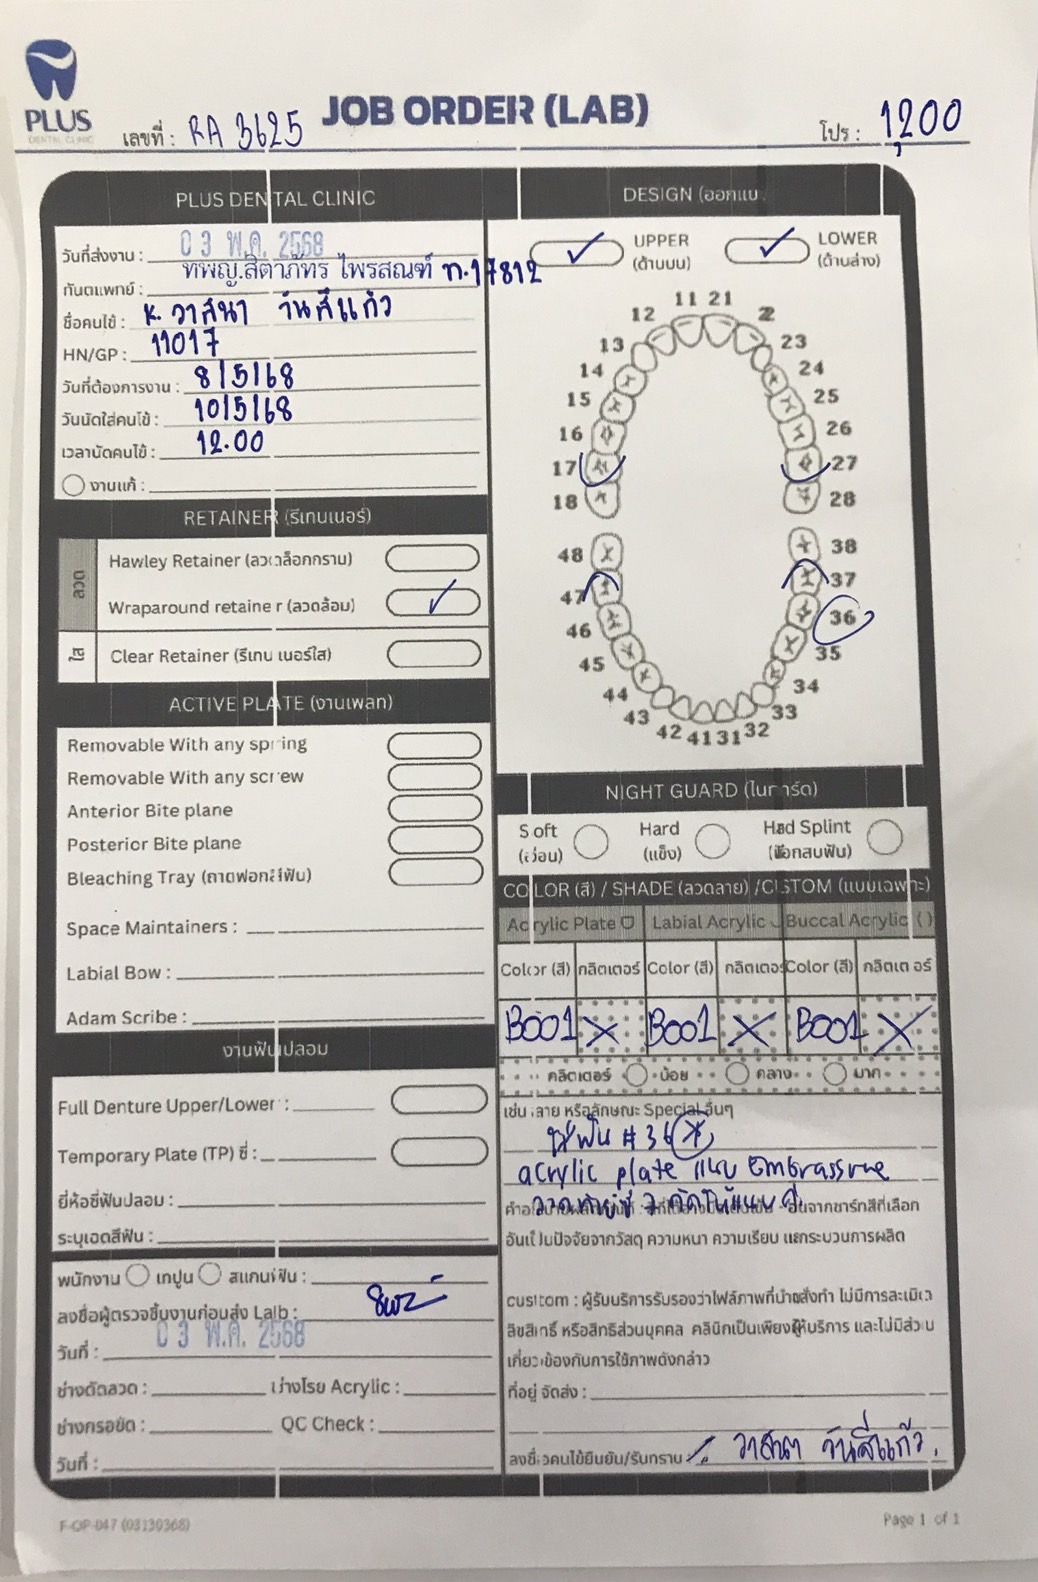 PLUS
DENTAL CLINIC
JOB ORDER (LAB)
เลขที่ : RA 3625
โปร : 1,200
PLUS DENTAL CLINIC
วันที่ส่งงาน : 03 พ.ค. 2568
ทันตแพทย์ : ทพญ.สิตาภัทร ไพรสณฑ์ ท.17812
ชื่อคนไข้ : K. วาสนา วันสีแก้ว
HN/GP : 11017
วันที่ต้องการงาน : 8/5/68
วันนัดใส่คนไข้ : 10/5/68
เวลานัดคนไข้ : 12.00
งานแก้ :
RETAINER (รีเทนเนอร์)
ลวด
Hawley Retainer (ลวดล็อกกราม)
Wraparound retainer (ลวดล้อม) ✓
ใส
Clear Retainer (รีเทนเนอร์ใส)
ACTIVE PLATE (งานเพลท)
Removable With any spring
Removable With any screw
Anterior Bite plane
Posterior Bite plane
Bleaching Tray (ถาดฟอกสีฟัน)
Space Maintainers :
Labial Bow :
Adam Scribe :
งานฟันปลอม
Full Denture Upper/Lower :
Temporary Plate (TP) ซี่ :
ยี่ห้อซี่ฟันปลอม :
ระบุเฉดสีฟัน :
พนักงาน เทปูน สแกนฟัน :
ลงชื่อผู้ตรวจชิ้นงานก่อนส่ง Lab :
วันที่ : 03 พ.ค. 2568
ช่างดัดลวด : ช่างโรย Acrylic :
ช่างกรอขัด : QC Check :
วันที่ :
DESIGN (ออกแบบ
✓ UPPER (ด้านบน) ✓ LOWER (ด้านล่าง)
11 21
12 22
13 23
14 24
15 25
16 26
17 27
18 28
48 38
47 37
46 36
45 35
44 34
43 33
42 41 31 32
NIGHT GUARD (ไนท์การ์ด)
Soft (อ่อน) Hard (แข็ง) Hard Splint (เฝือกสบฟัน)
COLOR (สี) / SHADE (ลวดลาย) /CUSTOM (แบบเฉพาะ)
Acrylic Plate Labial Acrylic Buccal Acrylic ( )
Color (สี) กลิตเตอร์ Color (สี) กลิตเตอร์ Color (สี) กลิตเตอร์
B001 X B001 X B001 X
กลิตเตอร์ น้อย กลาง มาก
เช่น ลาย หรือลักษณะ Special อื่นๆ
ฟัน #36
acrylic plate แบบ Embrassure
จากชาร์ทสีที่เลือก
อันเป็นปัจจัยจากวัสดุ ความหนา ความเรียบ และกระบวนการผลิต
custom : ผู้รับบริการรับรองว่าไฟล์ภาพที่นำมาสั่งทำ ไม่มีการละเมิด
ลิขสิทธิ์ หรือสิทธิส่วนบุคคล คลินิกเป็นเพียงผู้ให้บริการ และไม่มีส่วน
เกี่ยวข้องกับการใช้ภาพดังกล่าว
ที่อยู่ จัดส่ง :
ลงชื่อคนไข้ยืนยัน/รับทราบ : วาสนา วันสีแก้ว
F-OP-047 (03130368)
Page 1 of 1